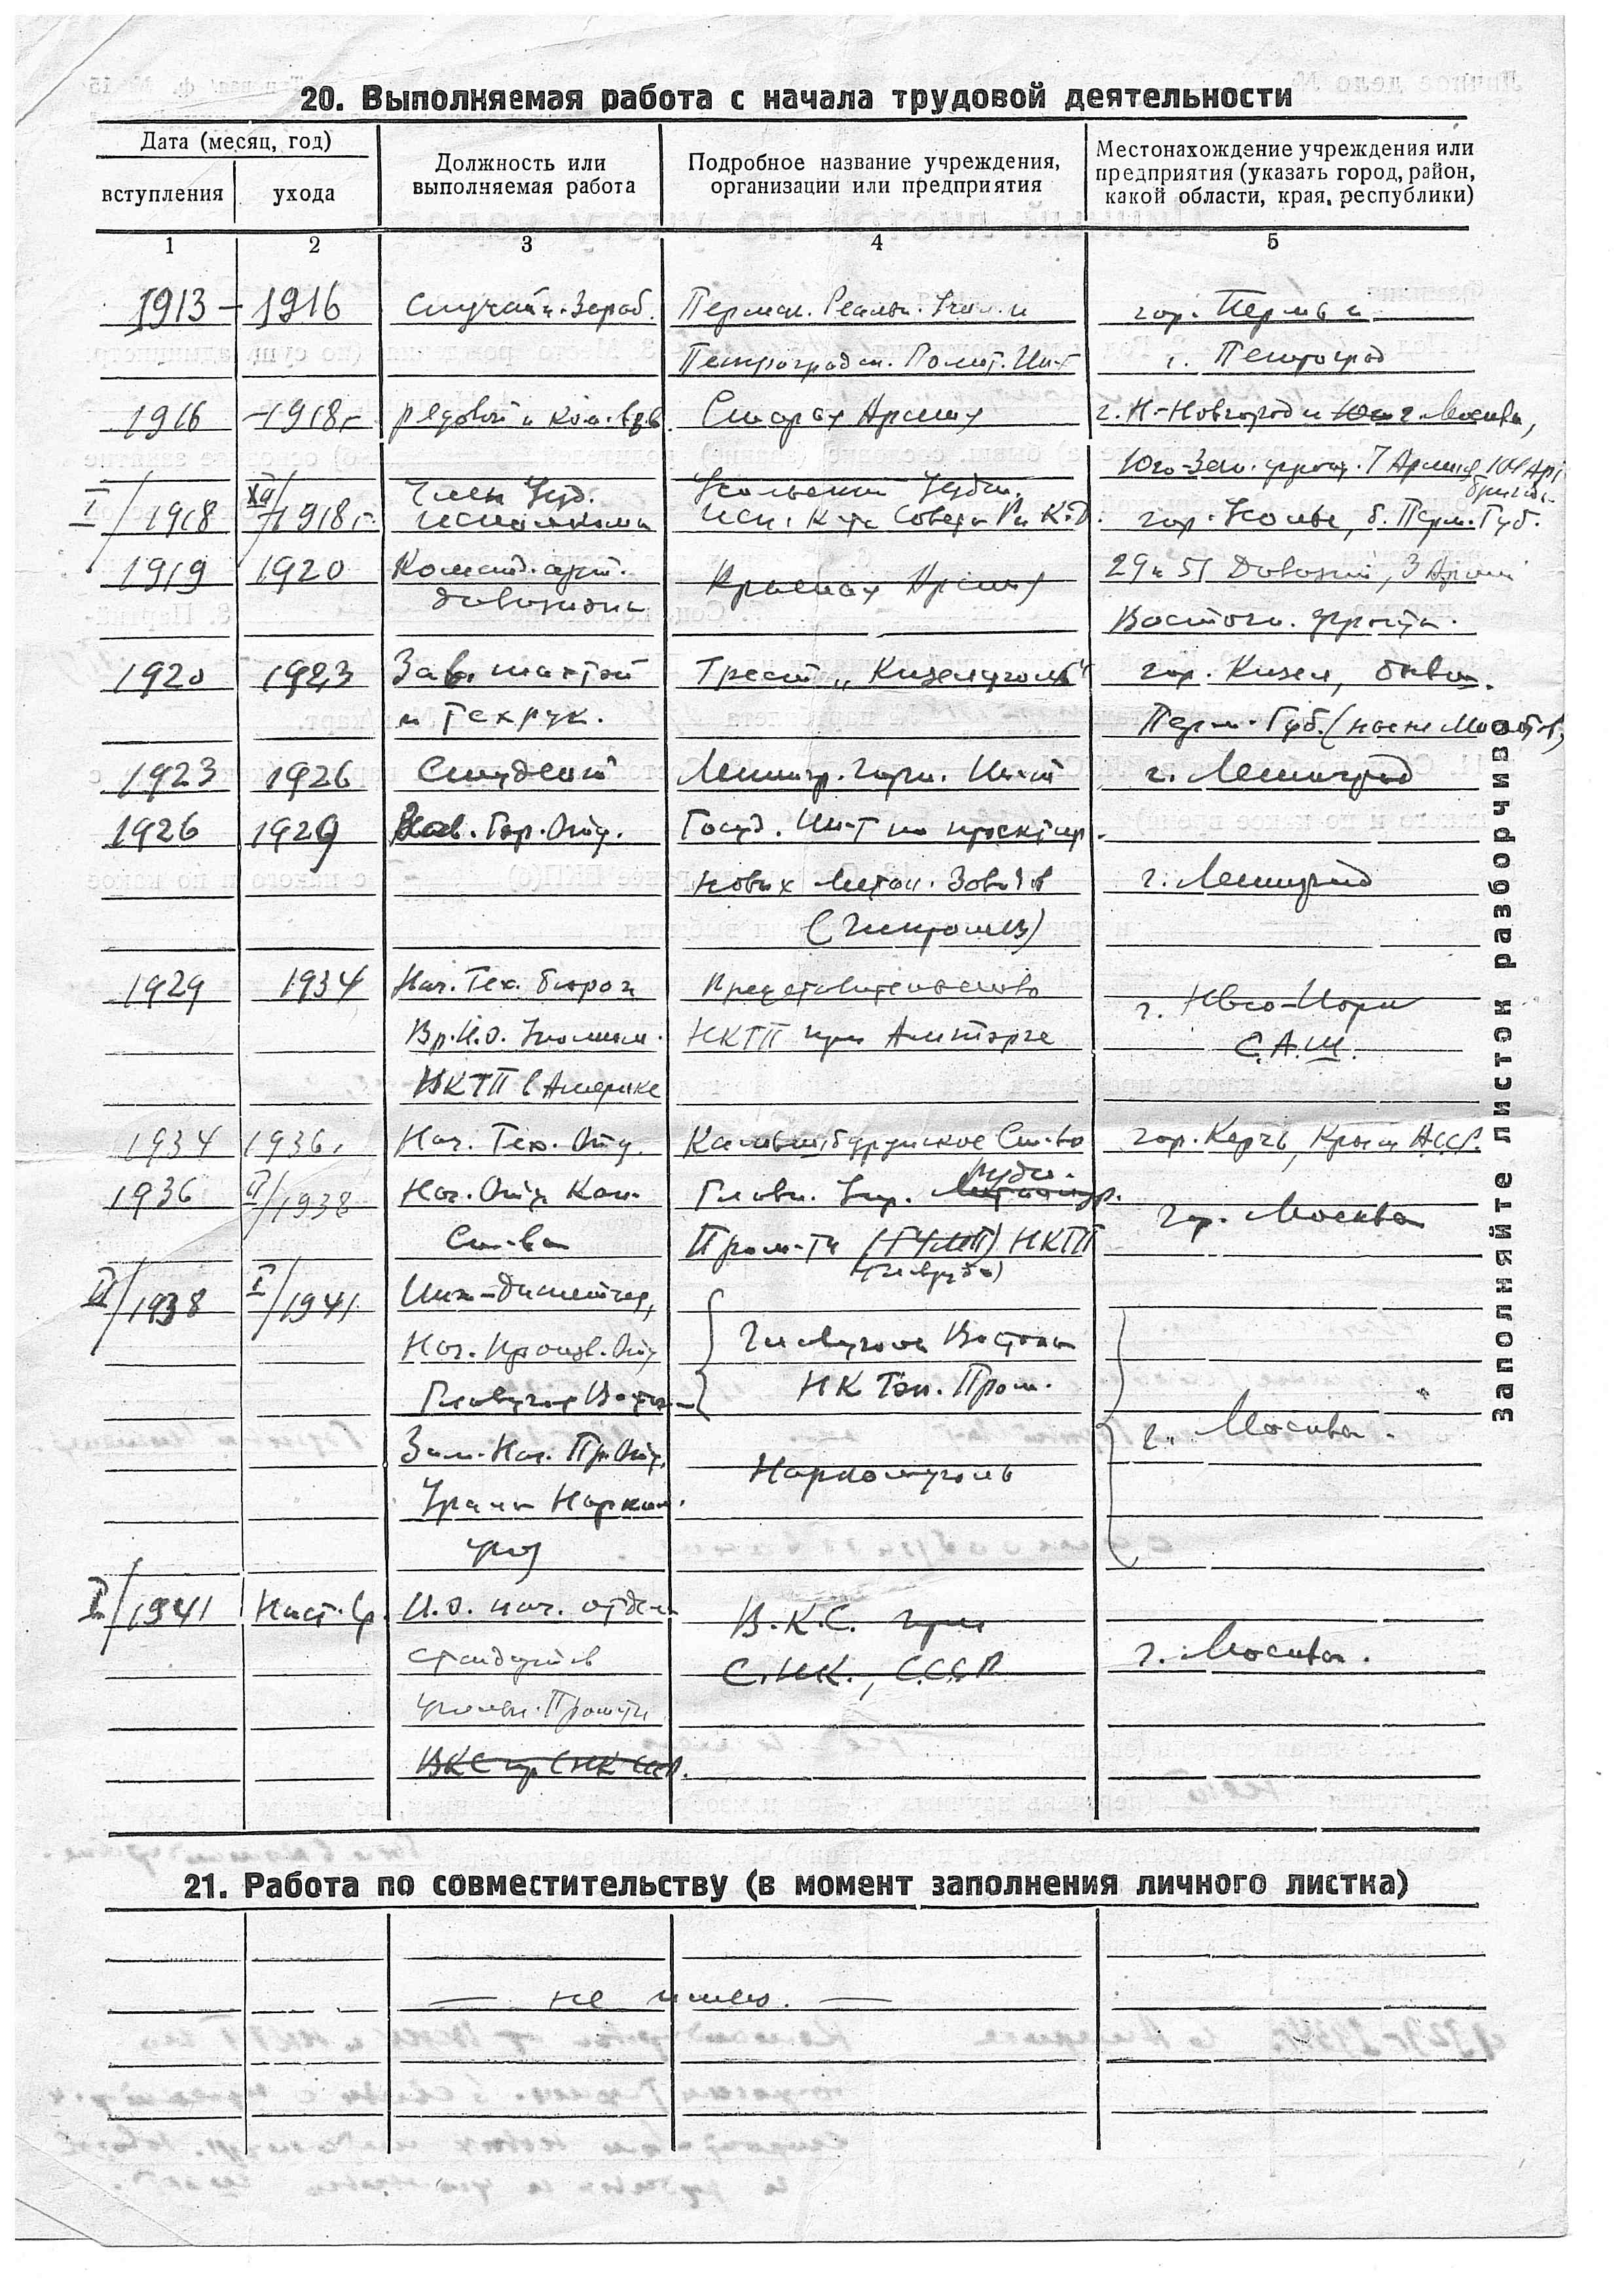 20. Выполняемая работа с начала трудовой деятельности
Дата (месяц, год)
вступления
ухода
Должность или
выполняемая работа
Подробное название учреждения,
организации или предприятия
Местонахождение учреждения или
предприятия (указать город, район,
какой области, края, республики)
1 2 3 4 5
1913 – 1916 Случайн. Зараб. Пермск. Реальн. Учил. и гор. Пермь и
Петроградск. Полит. Ин-т г. Петроград
1916 – 1918 г. рядовой и ком. взв. Старая Армия г. Н-Новгород и г. Москва,
Юго-Зап. фронт. 7 Армия 104 Арт
бригад.
I/1918 XII/1918 г. Член Уезд. Исполкома Усольский Уездн. Исп. К-та Совета Р и К.Д. гор. Усолье, б. Перм. Губ.
1919 1920 Команд. арт. Красная Армия 29 и 51 Дивизий, 3 Армии
дивизиона Восточн. фронта.
1920 1923 Зав. шахтой Трест „Кизелуголь“ гор. Кизел, бывш.
и Техрук. Перм. Губ. (ныне Молотов,
1923 1926 Студент Ленингр. Горн. Ин-т г. Ленинград
1926 1929 Зав. Гор. Отд. Госуд. Ин-т по проектир.
новых Метал. Завод в г. Ленинград
(Гипромез)
1929 1934 Нач. Тех. бюро и Представительство г. Нью-Йорк
Вр. И.О. Уполном. НКТП при Амторге С.А.Ш.
НКТП в Америке
1934 1936 г. Нач. Тех. Отд. Камышбурунское Ст-во гор. Керчь, Крым АССР.
1936 II/1938 Нач. Отд. Кап. Главн. Упр. Рудн.
Ст-ва Пром-ти (ГУМП) НКТП гор. Москва
(Главруда)
II/1938 I/1941 Инж-Диспетчер,
Нач. Произв. Отд. Главуголь Востока
Главугля Востока НК Топ. Пром.
Зам. Нач. Пр. Отд. Наркомуголь г. Москва.
Урала Нарком.
угля
I/1941 Наст. вр. И.О. нач. отдела В.К.С. при
стандартов С.Н.К., СССР г. Москва.
угольн. Пром-ти
ВКС пр СНК СССР.
Заполняйте листок разборчиво
21. Работа по совместительству (в момент заполнения личного листка)
— не имею. —